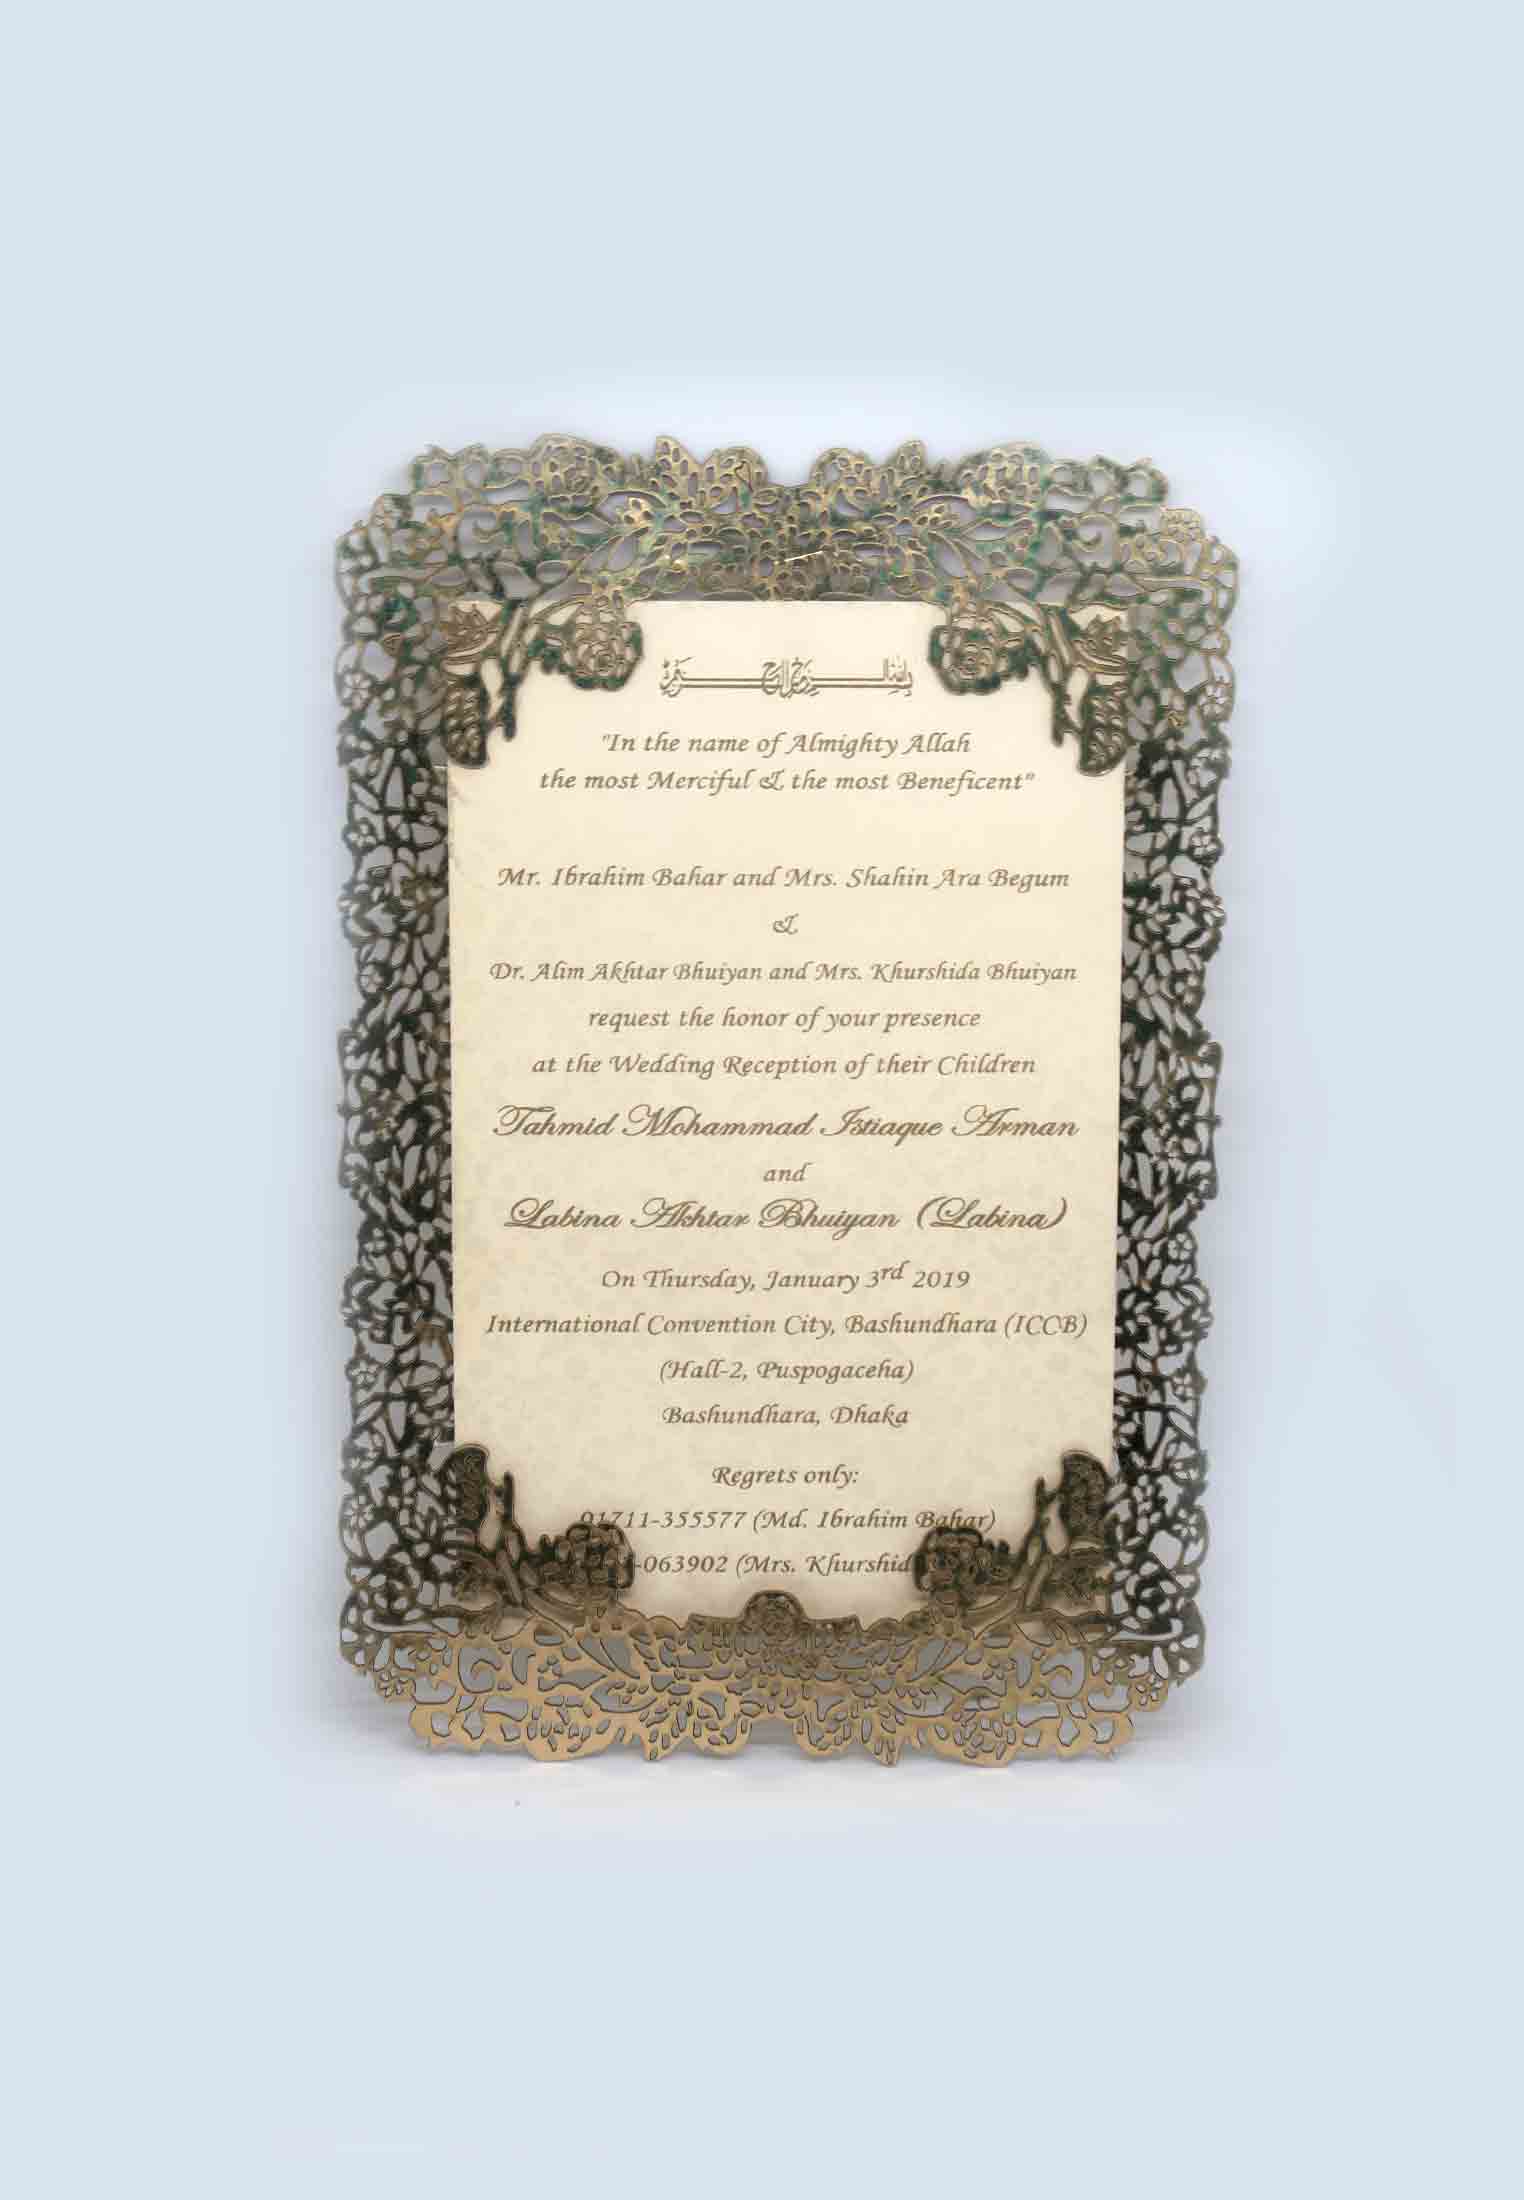 بسم الله الرحمن الرحيم
"In the name of Almighty Allah
the most Merciful & the most Beneficent"
Mr. Ibrahim Bahar and Mrs. Shahin Ara Begum
&
Dr. Alim Akhtar Bhuiyan and Mrs. Khurshida Bhuiyan
request the honor of your presence
at the Wedding Reception of their Children
Tahmid Mohammad Istiaque Arman
and
Labina Akhtar Bhuiyan (Labina)
On Thursday, January 3rd 2019
International Convention City, Bashundhara (ICCB)
(Hall-2, Puspogaceha)
Bashundhara, Dhaka
Regrets only:
01711-355577 (Md. Ibrahim Bahar)
-063902 (Mrs. Khurshid